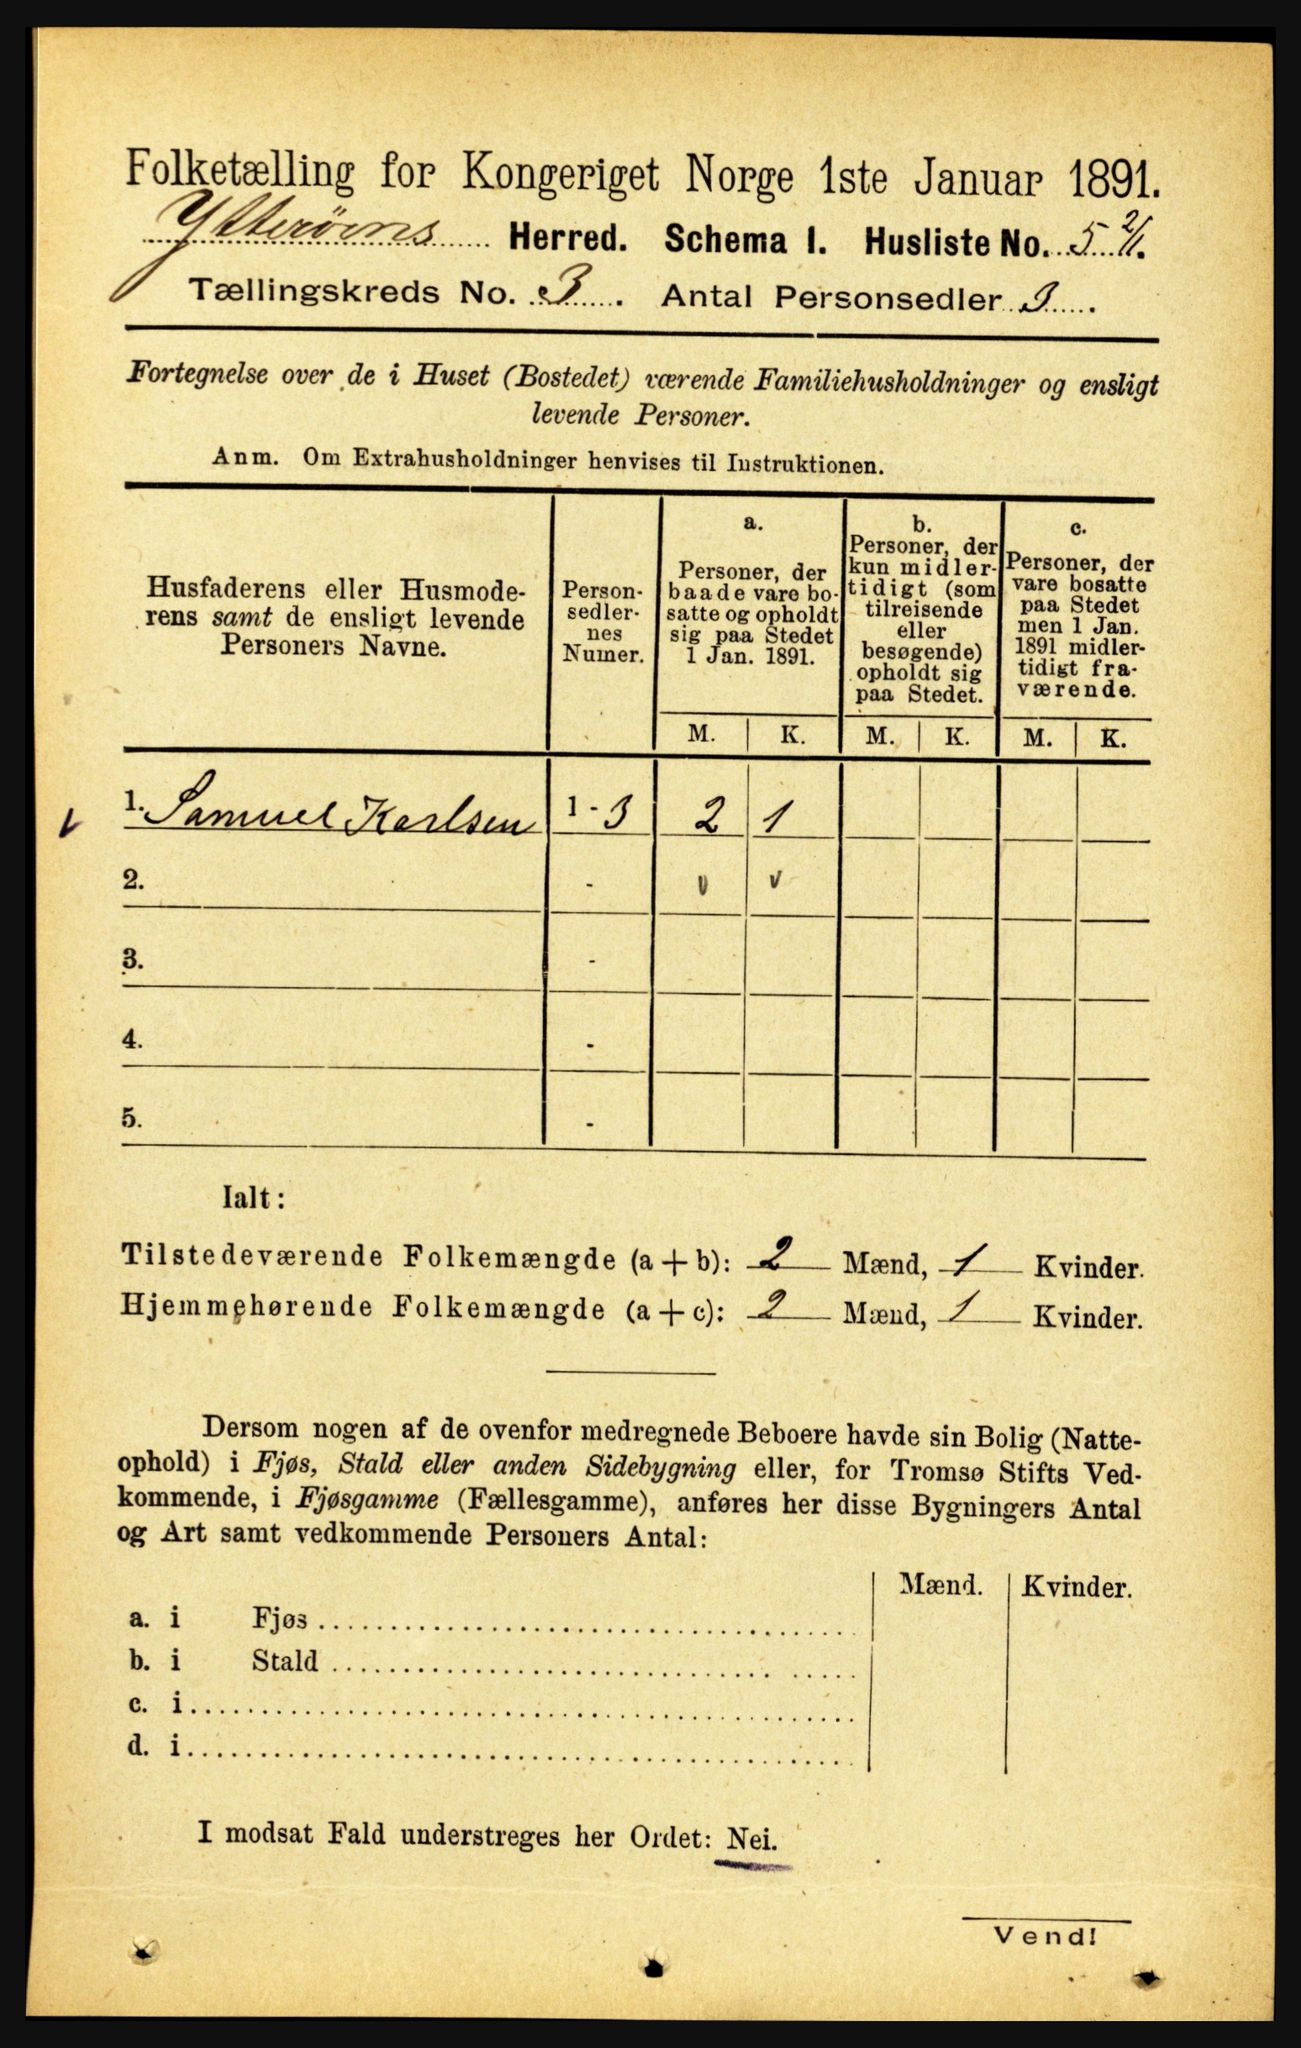 Folketælling for Kongeriget Norge 1ste Januar 1891.
Ytterøens Herred. Schema I. Husliste No. 5 2/1.
Tællingskreds No. 3. Antal Personsedler 3.
Fortegnelse over de i Huset (Bostedet) værende Familiehusholdninger og ensligt
levende Personer.
Anm. Om Extrahusholdninger henvises til Instruktionen.
Husfaderens eller Husmode-
rens samt de ensligt levende
Personers Navne.
Person-
sedler-
nes
Numer.
a.
Personer, der
baade vare bo-
satte og opholdt
sig paa Stedet
1 Jan. 1891.
b.
Personer, der
kun midler-
tidigt (som
tilreisende
eller
besøgende)
opholdt sig
paa Stedet.
c.
Personer, der
vare bosatte
paa Stedet
men 1 Jan.
1891 midler-
tidigt fra-
værende.
M. K. M. K. M. K.
1. Samuel Karlsen 1 - 3 2 1
2. - v v
3. -
4. -
5. -
Ialt:
Tilstedeværende Folkemængde (a + b): 2 Mænd, 1 Kvinder.
Hjemmehørende Folkemængde (a + c): 2 Mænd, 1 Kvinder.
Dersom nogen af de ovenfor medregnede Beboere havde sin Bolig (Natte-
ophold) i Fjøs, Stald eller anden Sidebygning eller, for Tromsø Stifts Ved-
kommende, i Fjøsgamme (Fællesgamme), anføres her disse Bygningers Antal
og Art samt vedkommende Personers Antal:
Mænd. Kvinder.
a. i Fjøs
b. i Stald
c. i
d. i
I modsat Fald understreges her Ordet: Nei.
Vend!